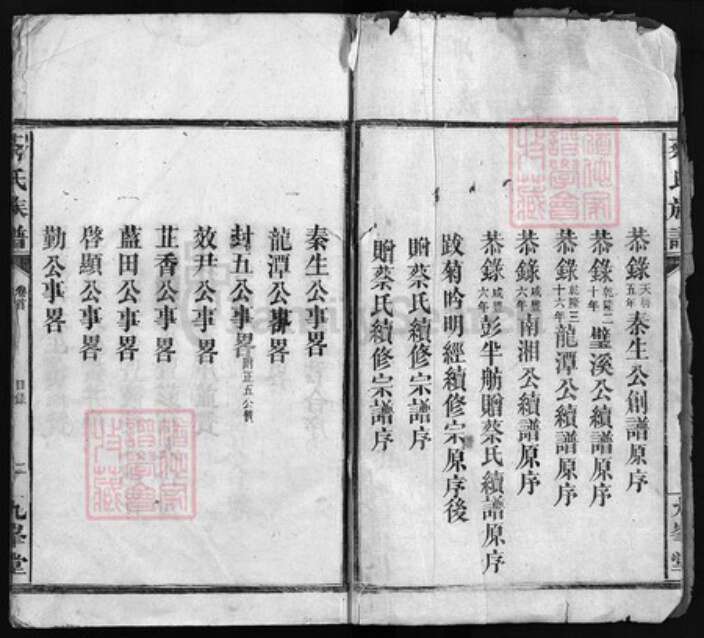 恭錄天啓五年泰生公創譜原序
恭錄乾隆二十年璧溪公續譜原序
恭錄乾隆三十六年龍潭公續譜原序
恭錄咸豐六年南湘公續譜原序
恭錄咸豐六年彭芈舫贈蔡氏續譜原序
跋菊吟明經續修宗原序後
贈蔡氏續修宗譜序
贈蔡氏續修宗譜序
九峯堂
泰生公事畧
龍潭公事畧
封五公事畧附正五公
效尹公事畧
芷香公事畧
藍田公事畧
啓顯公事畧
勤公事畧
蔡氏族譜 卷首 目錄 二 九峯堂